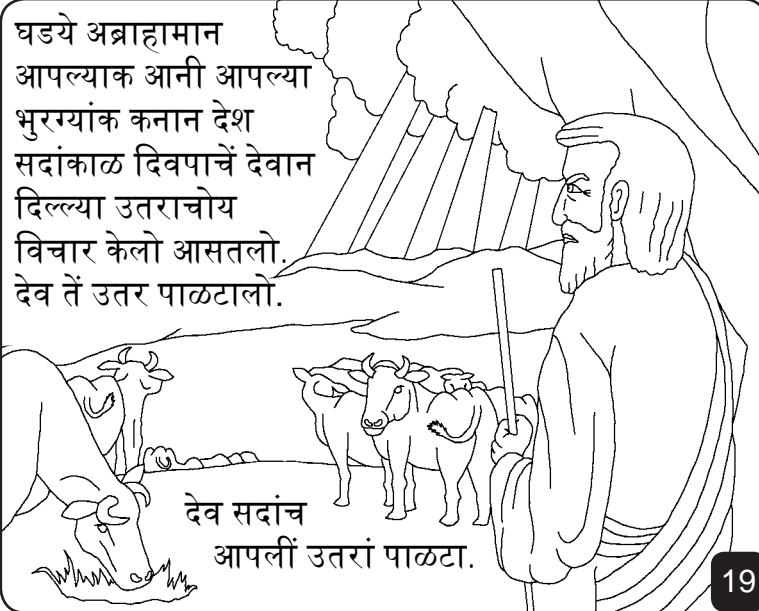 घडये अब्राहामान
आपल्याक आनी आपल्या
भुरग्यांक कनान देश
सदांकाळ दिवपाचें देवान
दिल्ल्या उतराचोय
विचार केलो आसतलो.
देव तें उतर पाळटालो.
देव सदांच
आपलीं उतरां पाळटा.
19